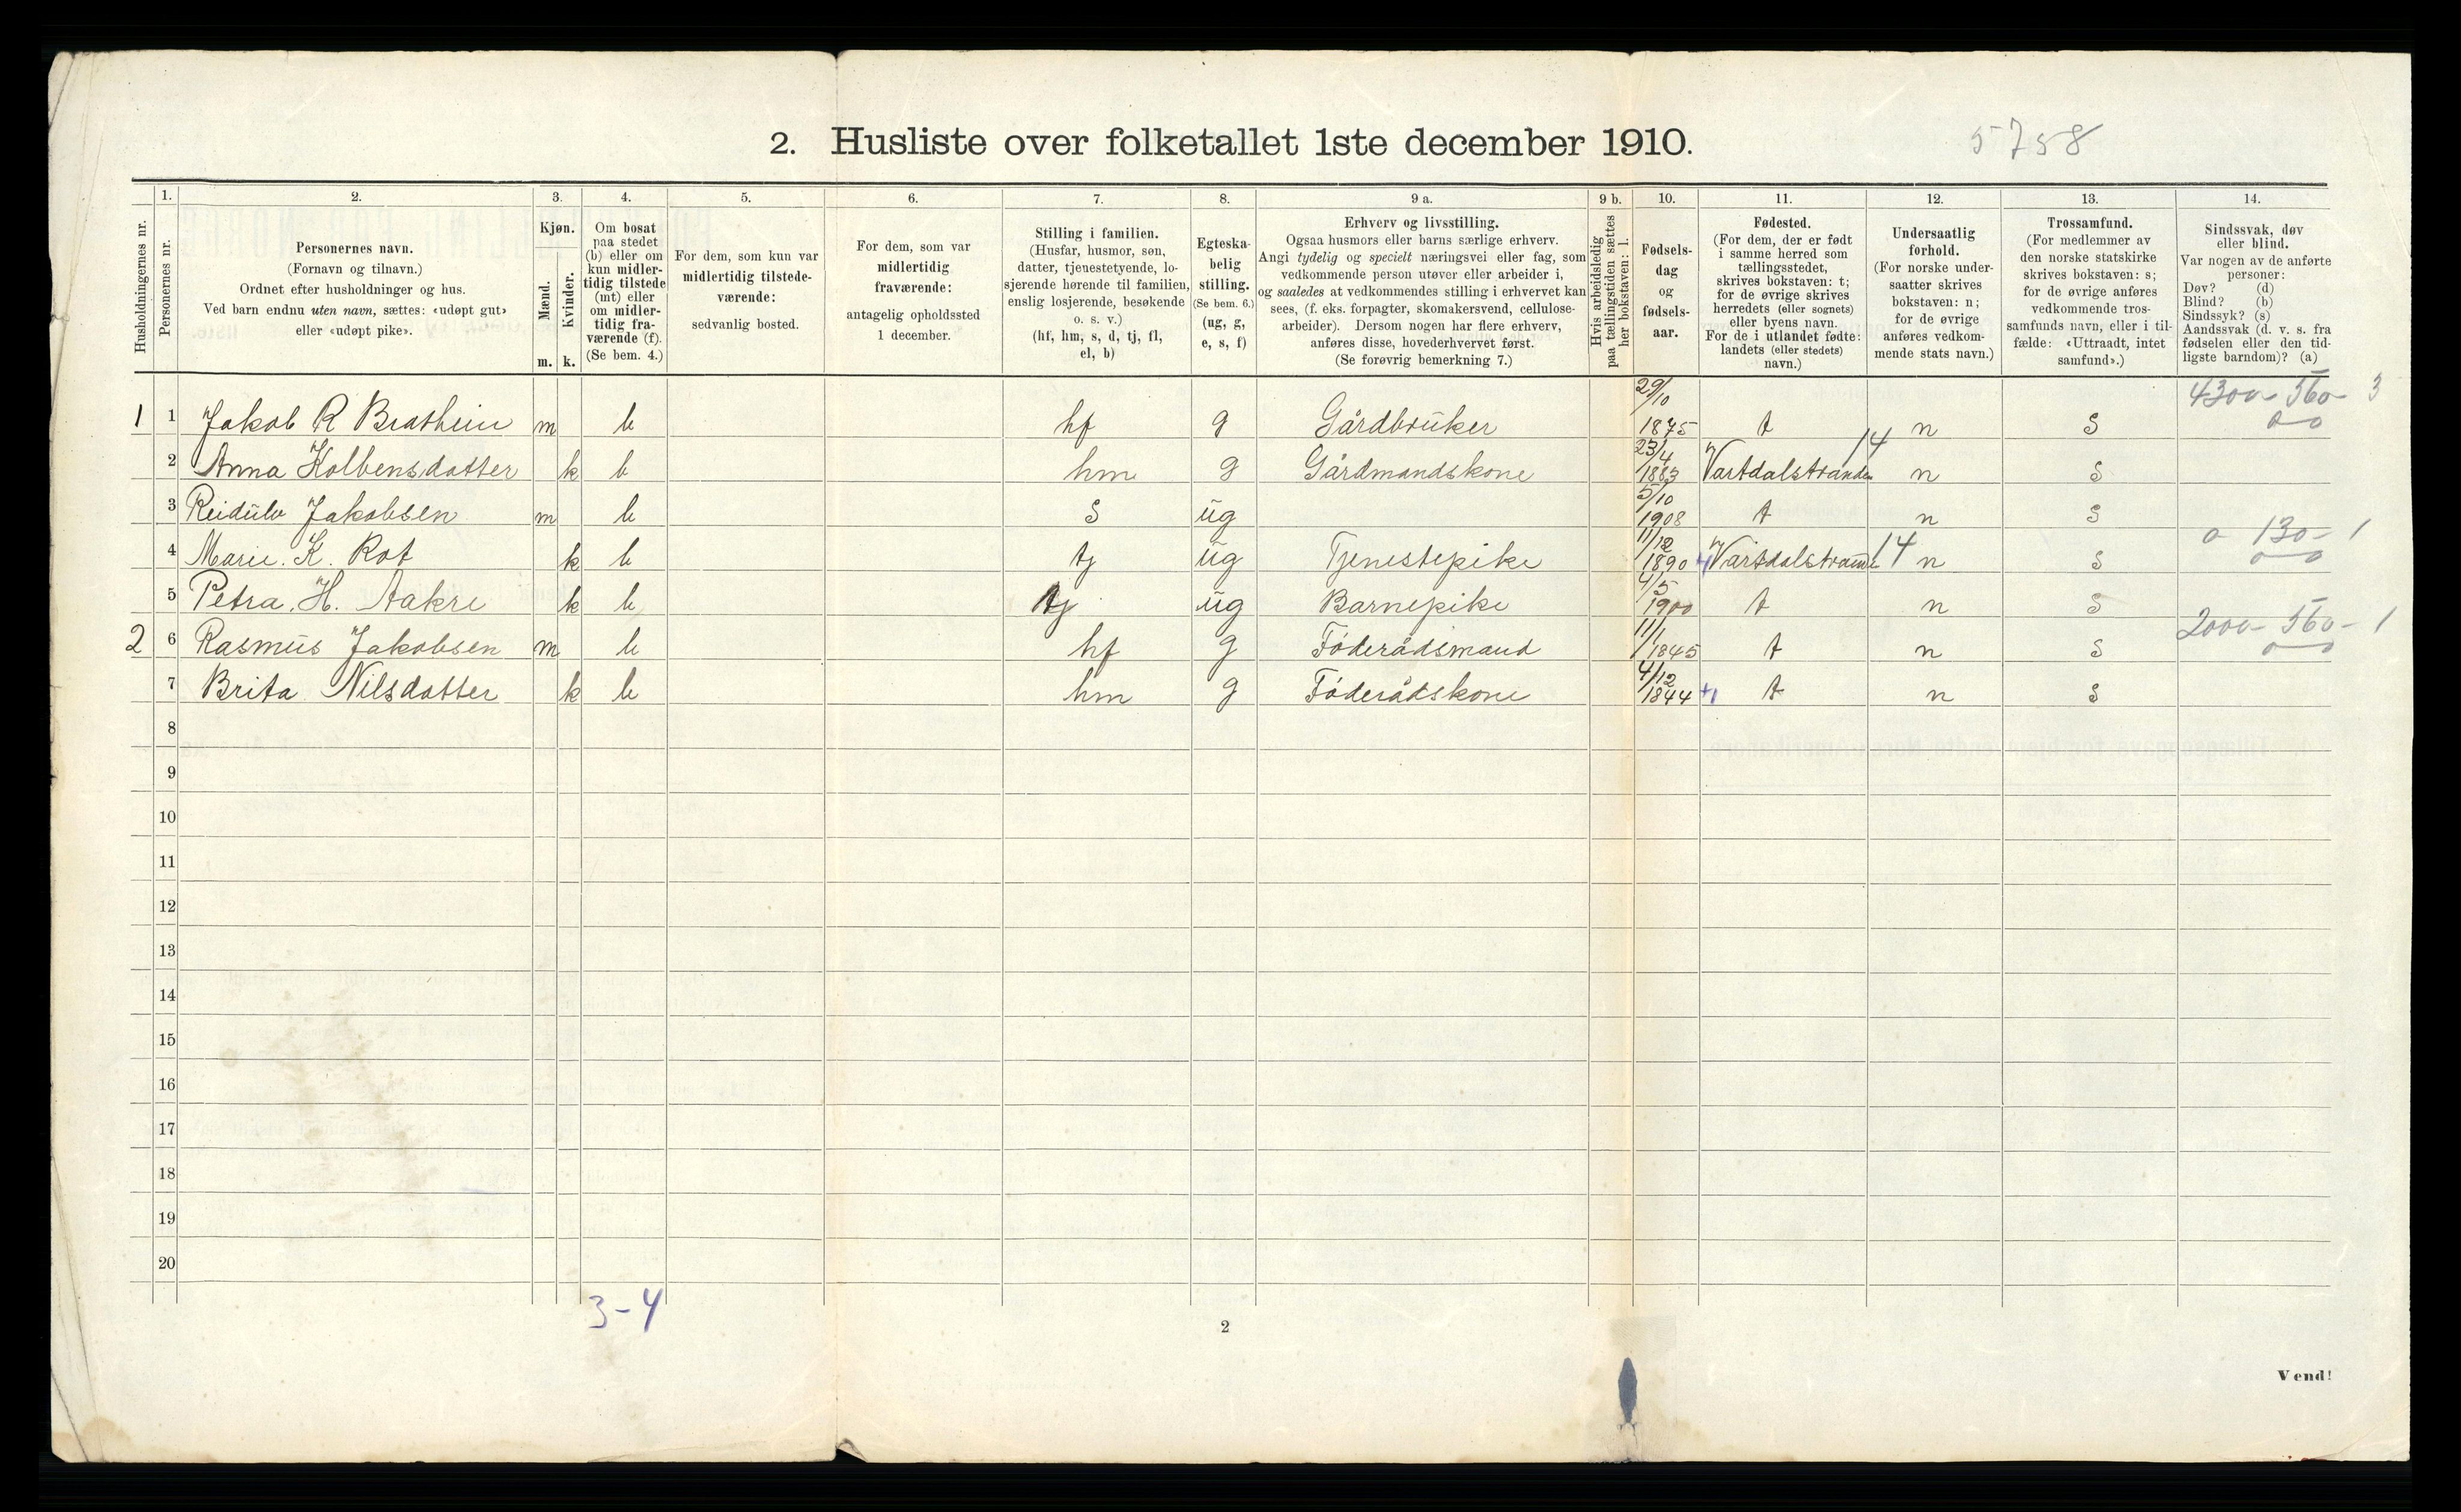 2. Husliste over folketallet 1ste december 1910.
5758
Husholdningernes nr.
1.
Personernes nr.
2.
Personernes navn.
(Fornavn og tilnavn.)
Ordnet efter husholdninger og hus.
Ved barn endnu uten navn, sættes: «udøpt gut»
eller «udøpt pike».
3.
Kjøn.
Mænd.
Kvinder.
m. k.
4.
Om bosat
paa stedet
(b) eller om
kun midler-
tidig tilstede
(mt) eller
om midler-
tidig fra-
værende (f).
(Se bem. 4.)
5.
For dem, som kun var
midlertidig tilstede-
værende:
sedvanlig bosted.
6.
For dem, som var
midlertidig
fraværende:
antagelig opholdssted
1 december.
7.
Stilling i familien.
(Husfar, husmor, søn,
datter, tjenestetyende, lo-
sjerende hørende til familien,
enslig losjerende, besøkende
o. s. v.)
(hf, hm, s, d, tj, fl,
el, b)
8.
Egteska-
belig
stilling.
(Se bem. 6.)
(ug, g,
e, s, f)
9 a.
Erhverv og livsstilling.
Ogsaa husmors eller barns særlige erhverv.
Angi tydelig og specielt næringsvei eller fag, som
vedkommende person utøver eller arbeider i,
og saaledes at vedkommendes stilling i erhvervet kan
sees, (f. eks. forpagter, skomakersvend, cellulose-
arbeider). Dersom nogen har flere erhverv,
anføres disse, hovederhvervet først.
(Se forøvrig bemerkning 7.)
9 b.
Hvis arbeidsledig
paa tællingstiden sættes
her bokstaven: l.
10.
Fødsels-
dag
og
fødsels-
aar.
11.
Fødested.
(For dem, der er født
i samme herred som
tællingsstedet,
skrives bokstaven: t;
for de øvrige skrives
herredets (eller sognets)
eller byens navn.
For de i utlandet fødte:
landets (eller stedets)
navn.)
12.
Undersaatlig
forhold.
(For norske under-
saatter skrives
bokstaven: n;
for de øvrige
anføres vedkom-
mende stats navn.)
13.
Trossamfund.
(For medlemmer av
den norske statskirke
skrives bokstaven: s;
for de øvrige anføres
vedkommende tros-
samfunds navn, eller i til-
fælde: «Uttraadt, intet
samfund».)
14.
Sindssvak, døv
eller blind.
Var nogen av de anførte
personer:
Døv? (d)
Blind? (b)
Sindssyk? (s)
Aandssvak (d. v. s. fra
fødselen eller den tid-
ligste barndom)? (a)
4300 - 560 - 3
0-0
1 1 Jakob R Brathein m b hf g Gårdbruker 29/10 1875 t n s
2 Anna Kolbensdatter k b hm g Gårdmandskone 23/4 1883 Vartdalstranden 14 n s
3 Reidulv Jakobsen m b s ug 5/10 1908 t n s
0 - 130 - 1
0-0
4 Marie. K. Rot k b tj ug Tjenestepike 11/12 1890 Vartdalstrand 14 n s
5 Petra. H. Aakre k b tj ug Barnepike 4/5 1900 t n s
2000 - 560 - 1
0-0
2 6 Rasmus Jakobsen m b hf g Föderådsmand 11/1 1845 t n s
7 Brita Nilsdatter k b hm g Föderådskone 4/12 1844 t n s
8
9
10
11
12
13
14
15
16
17
18
19
20
3-4
2
Vend!